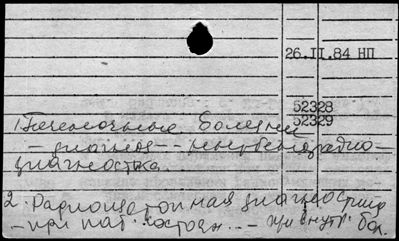 26.II.84 НП
52328
1. Печеночные болезни 52329
– диагноз --
диагностика.
2. Радиоизотопная диагностика
– при пат. состоян. -- при внутр. бол.